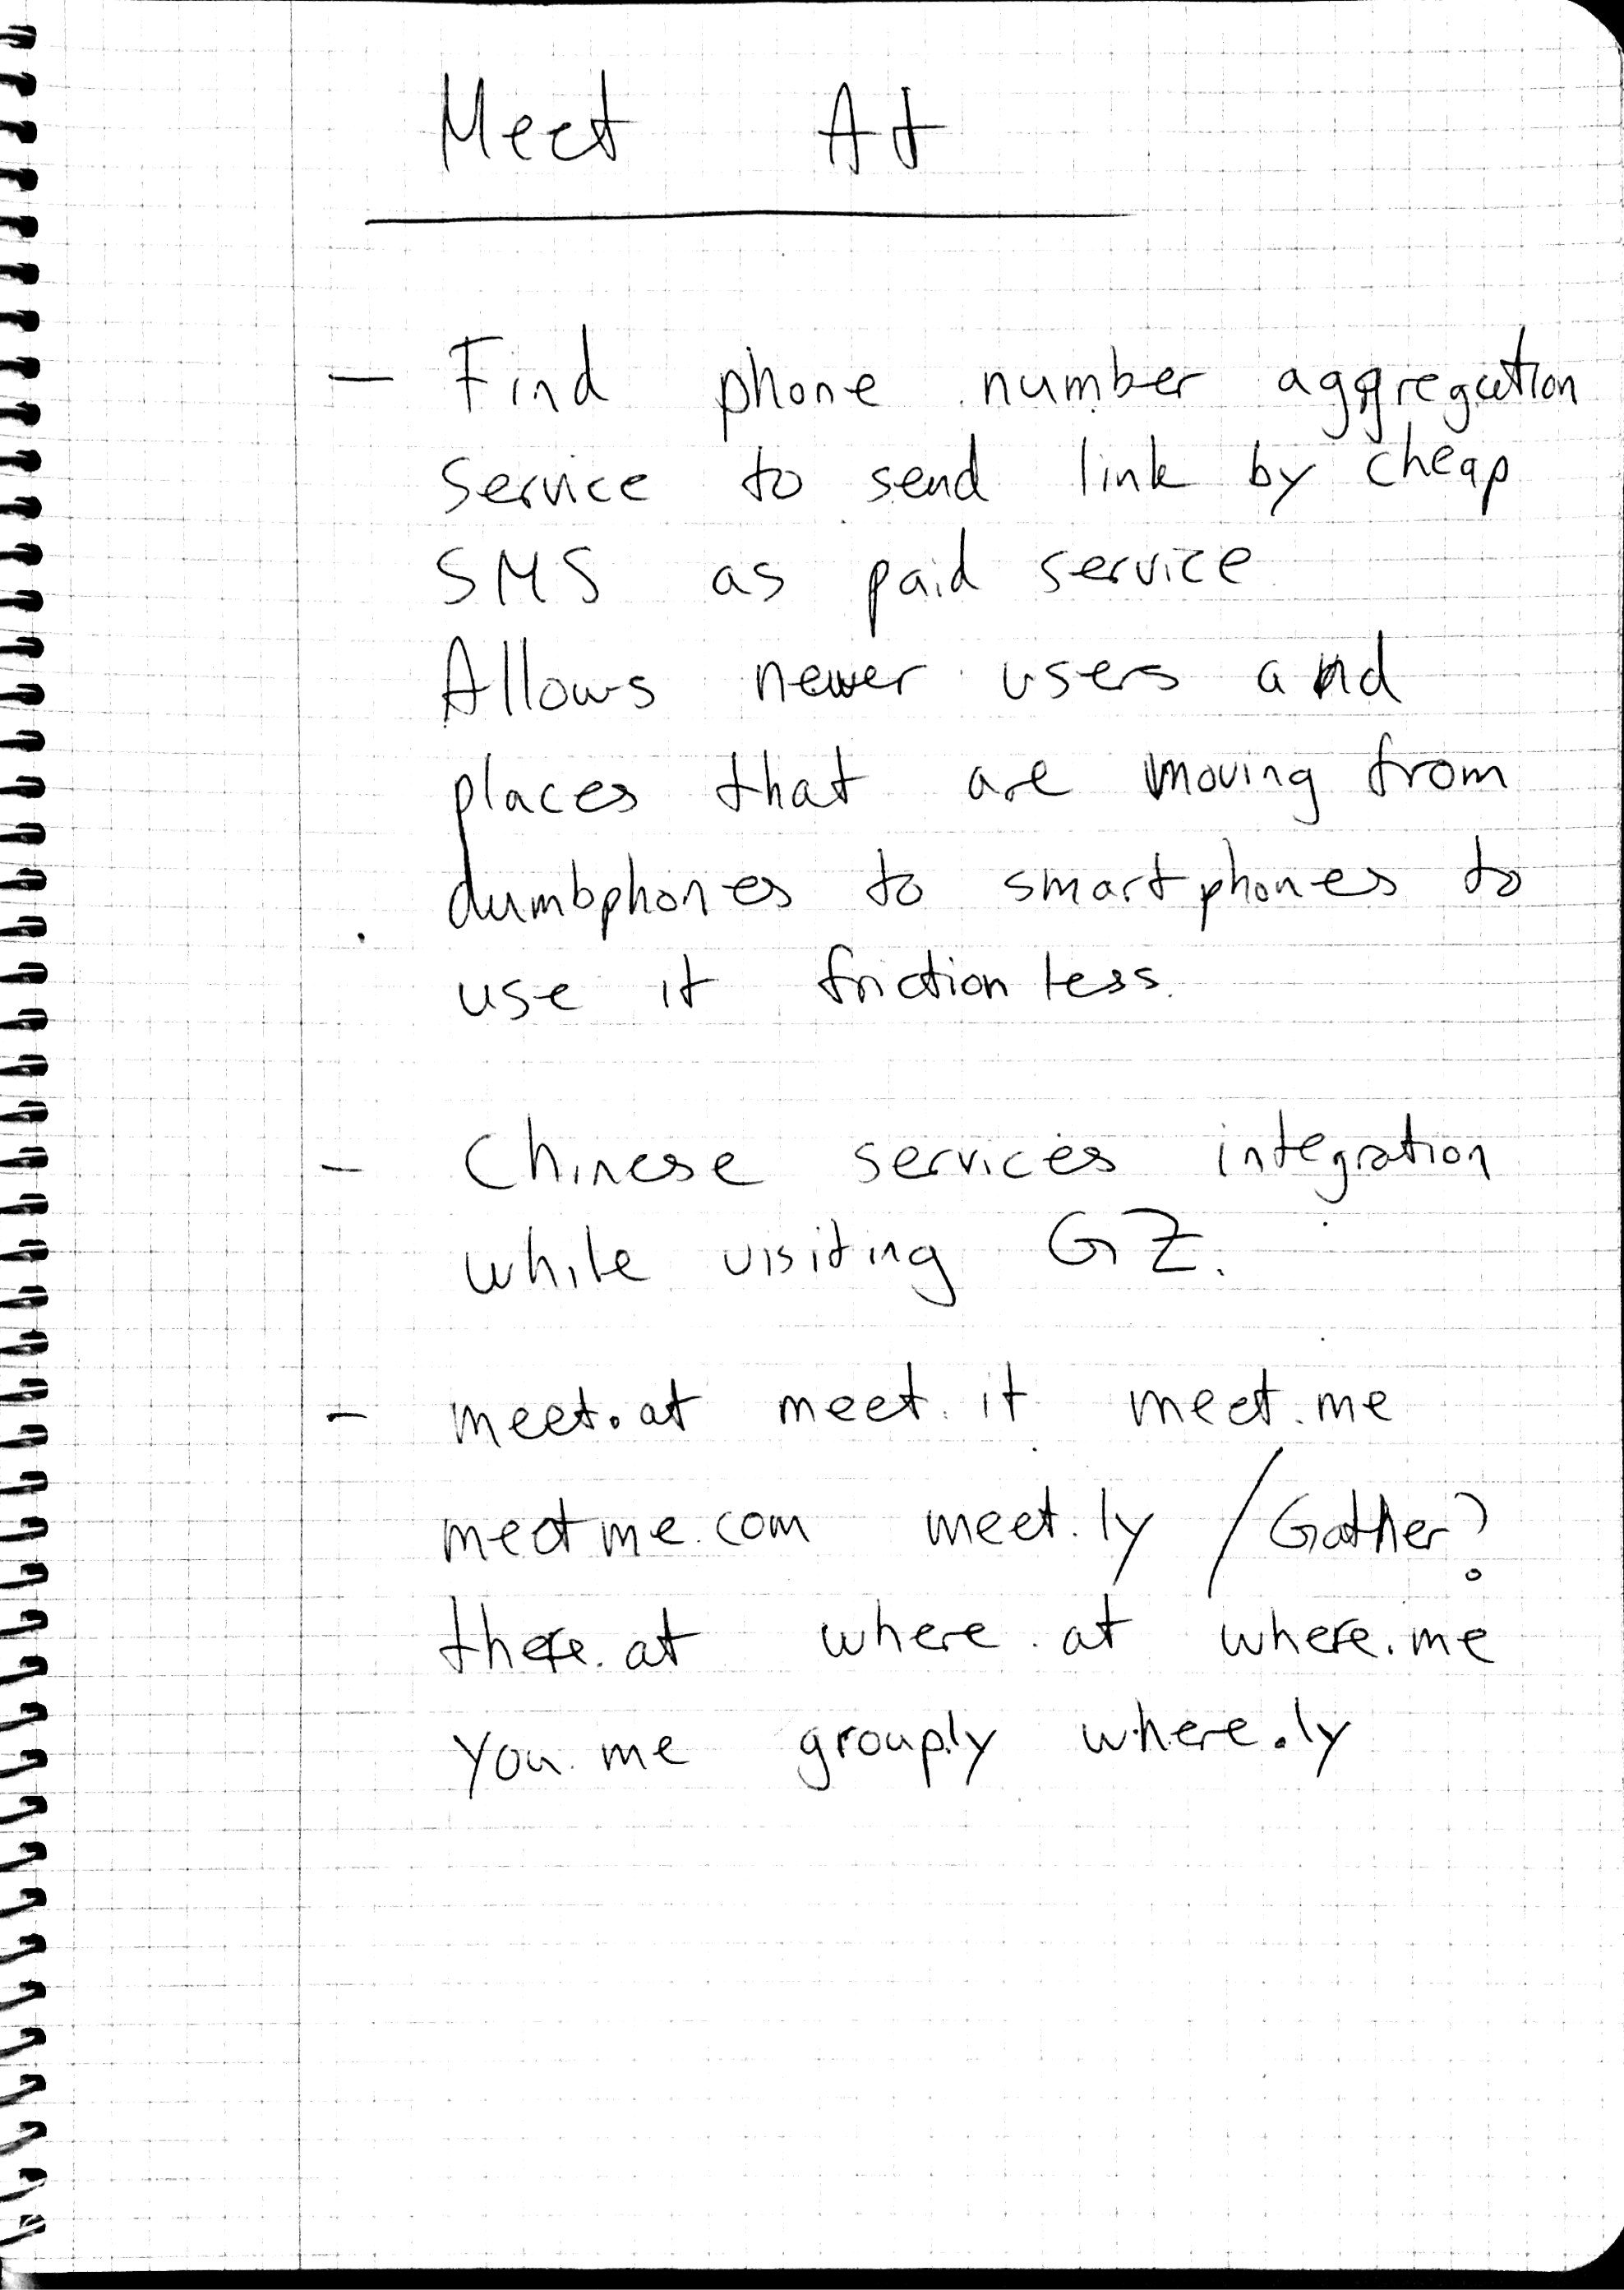 Meet At
- Find phone number aggregation
service to send link by cheap
SMS as paid service
Allows newer users and
places that are moving from
dumbphones to smartphones to
use it frictionless.
- Chinese services integration
while visiting GZ.
- meet.at meet.it meet.me
meetme.com meet.ly / Gather?
there.at where.at where.me
you.me group.ly where.ly